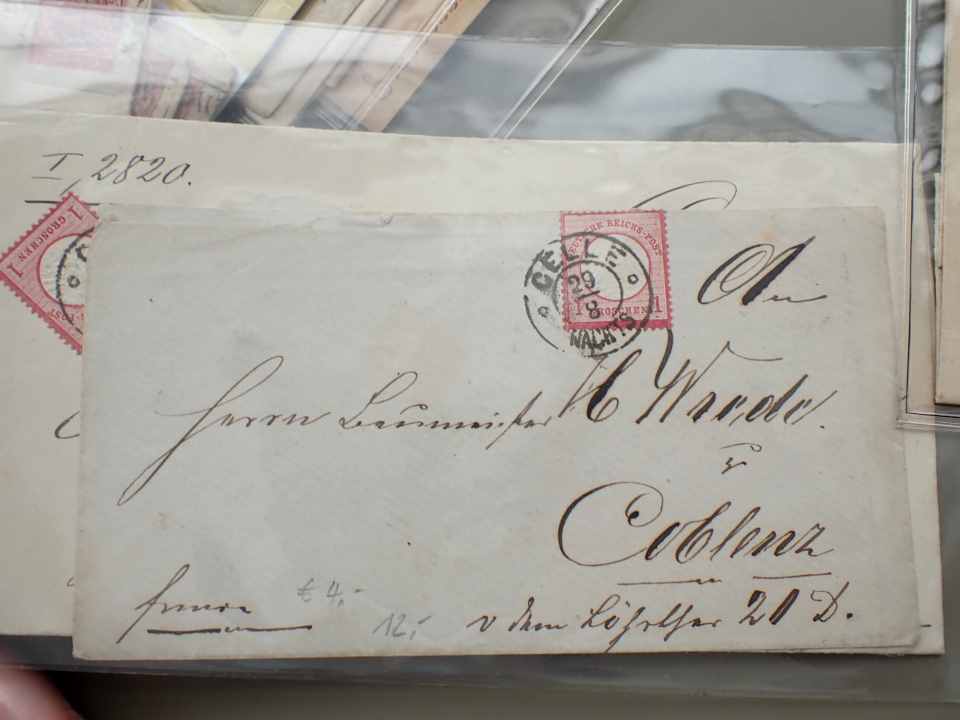 I, 2820.
1 GROSCHEN 1
DEUTSCHE REICHS-POST
1 GROSCHEN 1
CELLE
29
8
NACHTS
An
Herrn Baumeister H Wrede.
Coblenz
franco
€ 4,-
12,-
v dem Löhrthor 20 D.